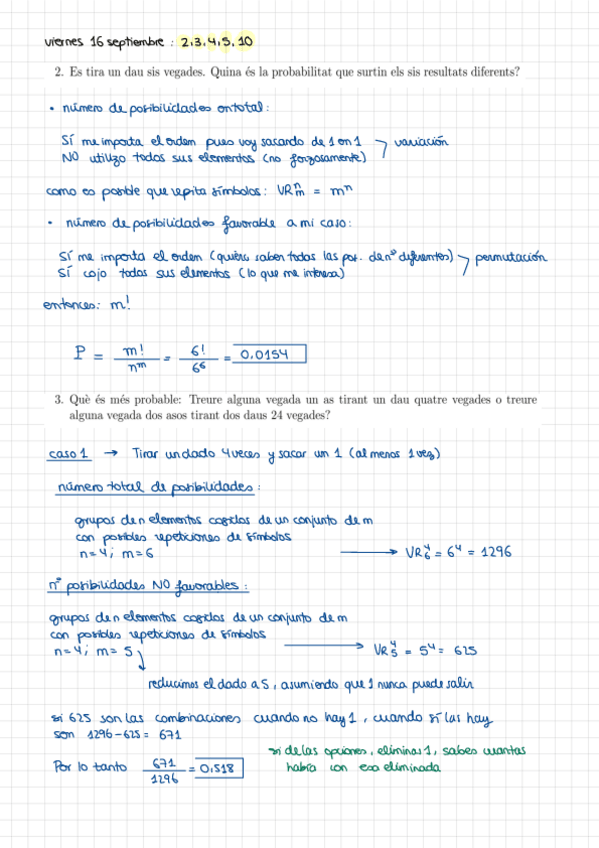 viernes 16 septiembre : 2,3,4,5,10
2. Es tira un dau sis vegades. Quina és la probabilitat que surtin els sis resultats diferents?
• número de posibilidades en total:
Sí me importa el orden pues voy sacando de 1 en 1
NO utilizo todos sus elementos (no forzosamente)
variación
como es posible que repita símbolos: VRₘⁿ = mⁿ
• número de posibilidades favorable a mi caso:
Sí me importa el orden (quiero saber todas las pos. de nº diferentes)
Sí cojo todos sus elementos (lo que me interesa)
permutación
entonces: m!
P = m! / nᵐ = 6! / 6⁶ = 0.0154
3. Què és més probable: Treure alguna vegada un as tirant un dau quatre vegades o treure
alguna vegada dos asos tirant dos daus 24 vegades?
caso 1 → Tirar un dado 4 veces y sacar un 1 (al menos 1 vez)
número total de posibilidades:
grupos de n elementos cogidos de un conjunto de m
con posibles repeticiones de símbolos
n=4; m=6 → VR₆⁴ = 6⁴ = 1296
nº posibilidades NO favorables:
grupos de n elementos cogidos de un conjunto de m
con posibles repeticiones de símbolos
n=4; m=5 → VR₅⁴ = 5⁴ = 625
reducimos el dado a 5, asumiendo que 1 nunca puede salir
si 625 son las combinaciones cuando no hay 1, cuando sí las hay
son 1296-625 = 671
Por lo tanto 671 / 1296 = 0,518
si de las opciones, eliminas 1, sabes cuantas
habría con esa eliminada